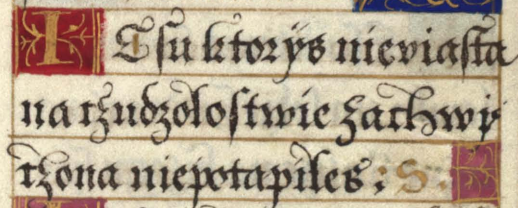 IESu ktorys nieviasta
na czudzolostwie zachwy
czona niepotapiles: S: